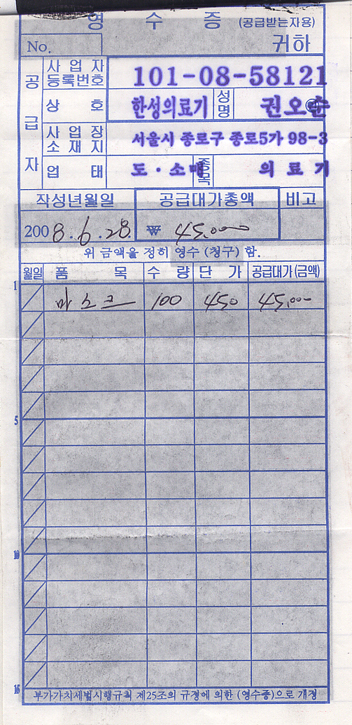 영 수 증 (공급받는자용)
No. 귀하
공급자
사업자등록번호 101-08-58121
상 호 한성의료기 성명 권오순
사업장소재지 서울시 종로구 종로5가 98-3
업 태 도·소매 종목 의료기
작성년월일 공급대가총액 비고
2008.6.28. ₩ 45,000
위 금액을 정히 영수 (청구) 함.
월일 품 목 수 량 단 가 공급대가(금액)
1 마스크 100 450 45,000
5
10
15
부가가치세법시행규칙 제25조의 규정에 의한 (영수증)으로 개정